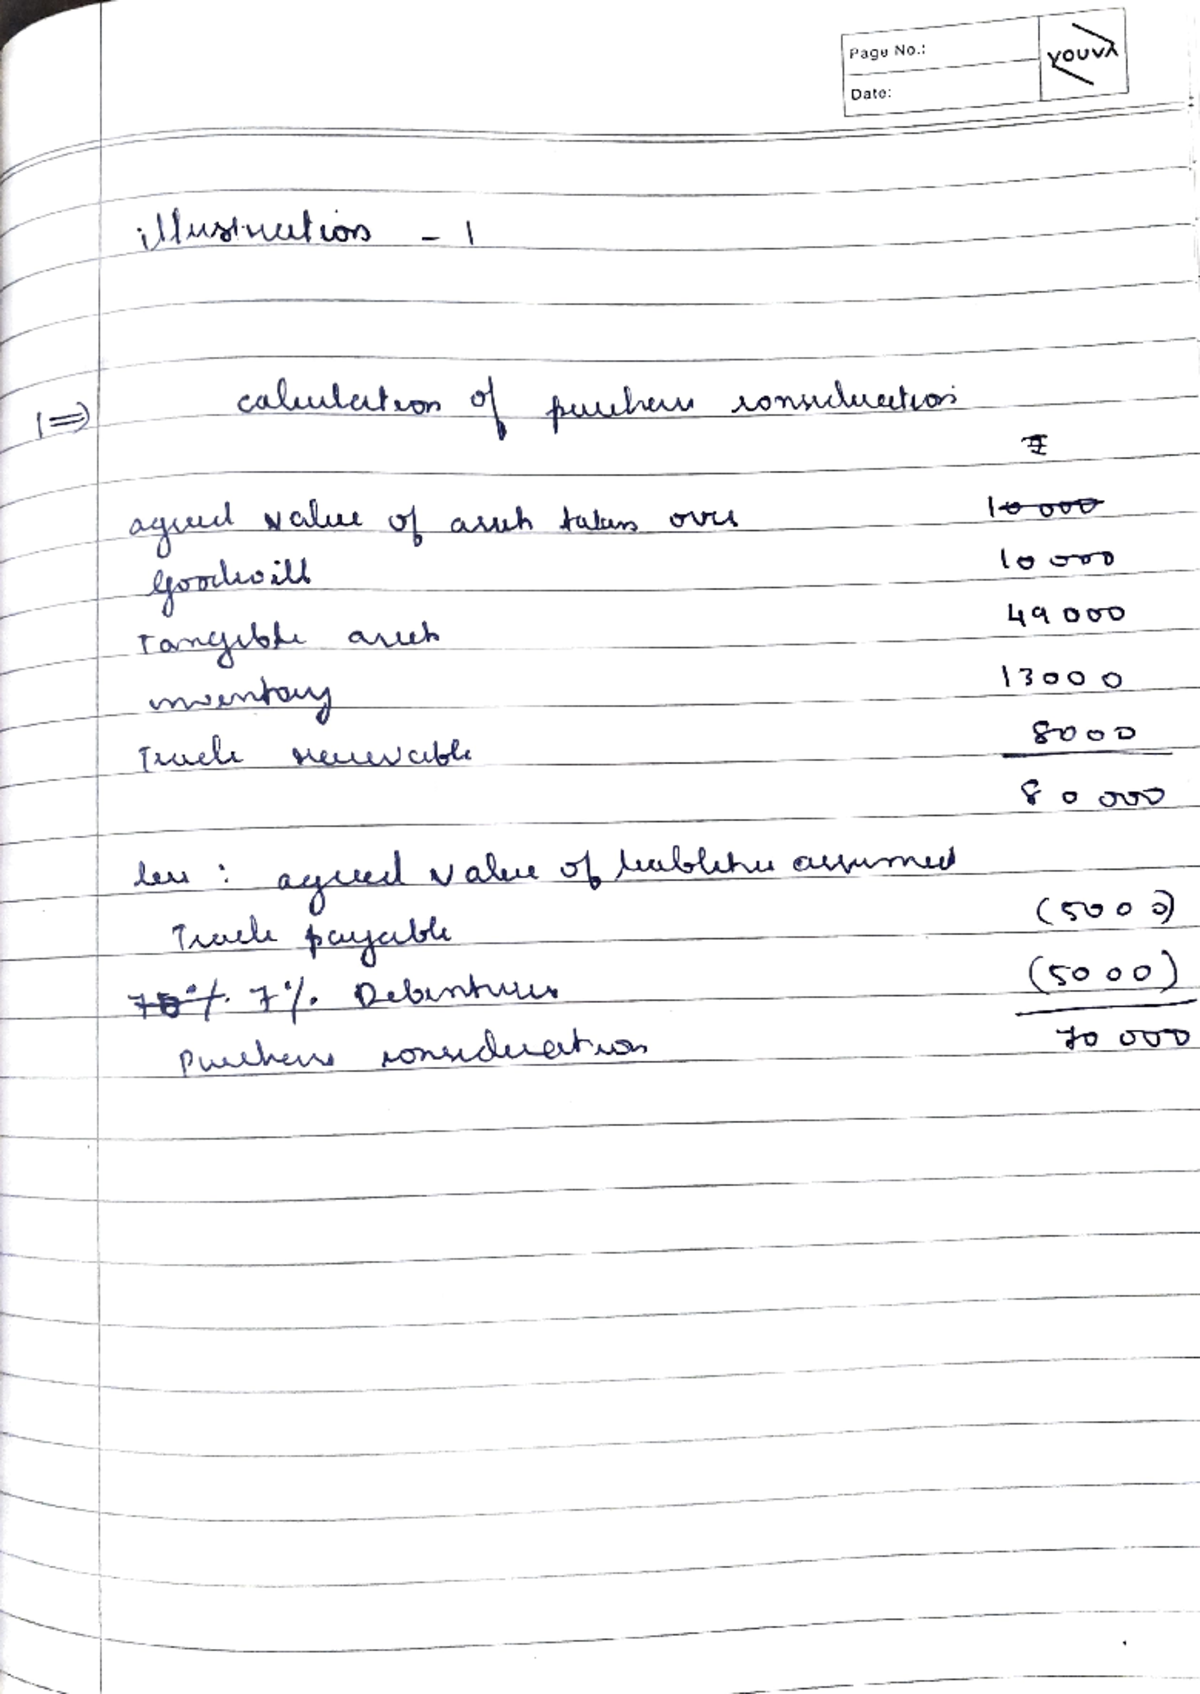 Page No.:
Date:
YOUVA
illustration - 1
1⇒ calculation of purchase consideration
₹
agreed value of assets taken over 10 000
Goodwill 10 000
Tangible assets 49 000
inventory 13000
Trade receivable 8000
80 000
less : agreed value of liabilities assumed
Trade payable (5000)
7% Debentures (5000)
Purchase consideration 70 000